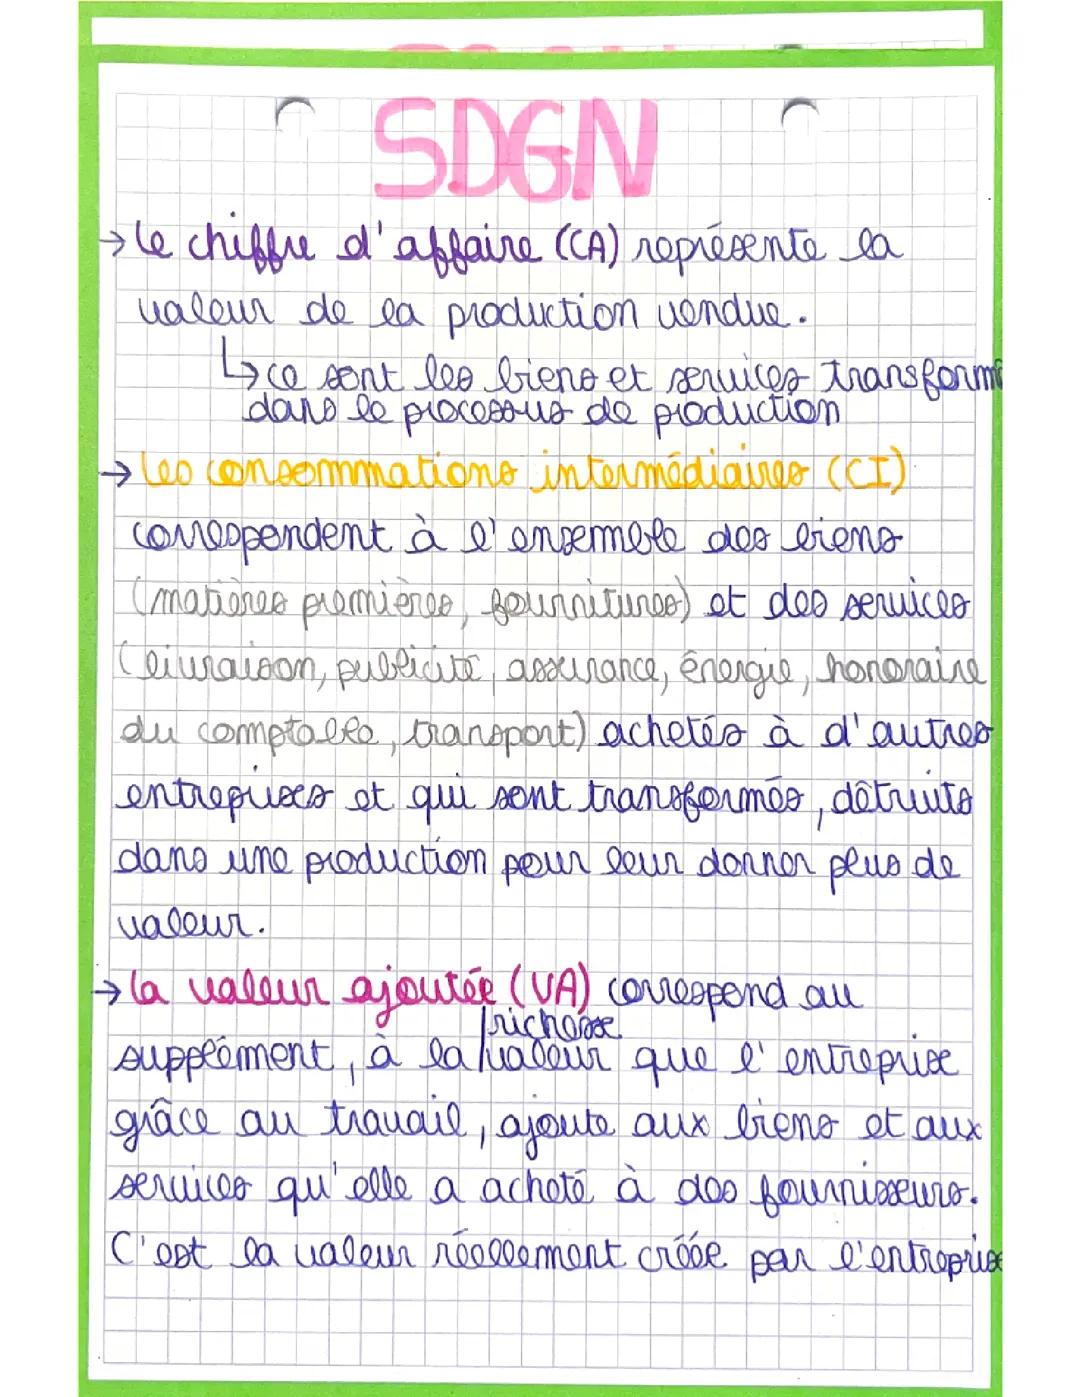 SDGN
→ le chiffre d'affaire (CA) représente la
valeur de la production vendue.
↳ ce sont les biens et services transformé
dans le processus de production
→ les consommations intermédiaires (CI)
correspondent à l'ensemble des biens
(matières premières, fournitures) et des services
(livraison, publicité, assurance, énergie, honoraire
du comptable, transport) achetés à d'autres
entreprises et qui sont transformés, détruits
dans une production pour leur donner plus de
valeur.
→ la valeur ajoutée (VA) correspond au
richesse
supplément, à la valeur que l'entreprise
grâce au travail, ajoute aux biens et aux
services qu'elle a acheté à des fournisseurs.
C'est la valeur réellement créée par l'entreprise